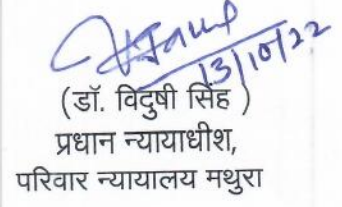 13/10/22
(डॉ. विदुषी सिंह )
प्रधान न्यायाधीश,
परिवार न्यायालय मथुरा